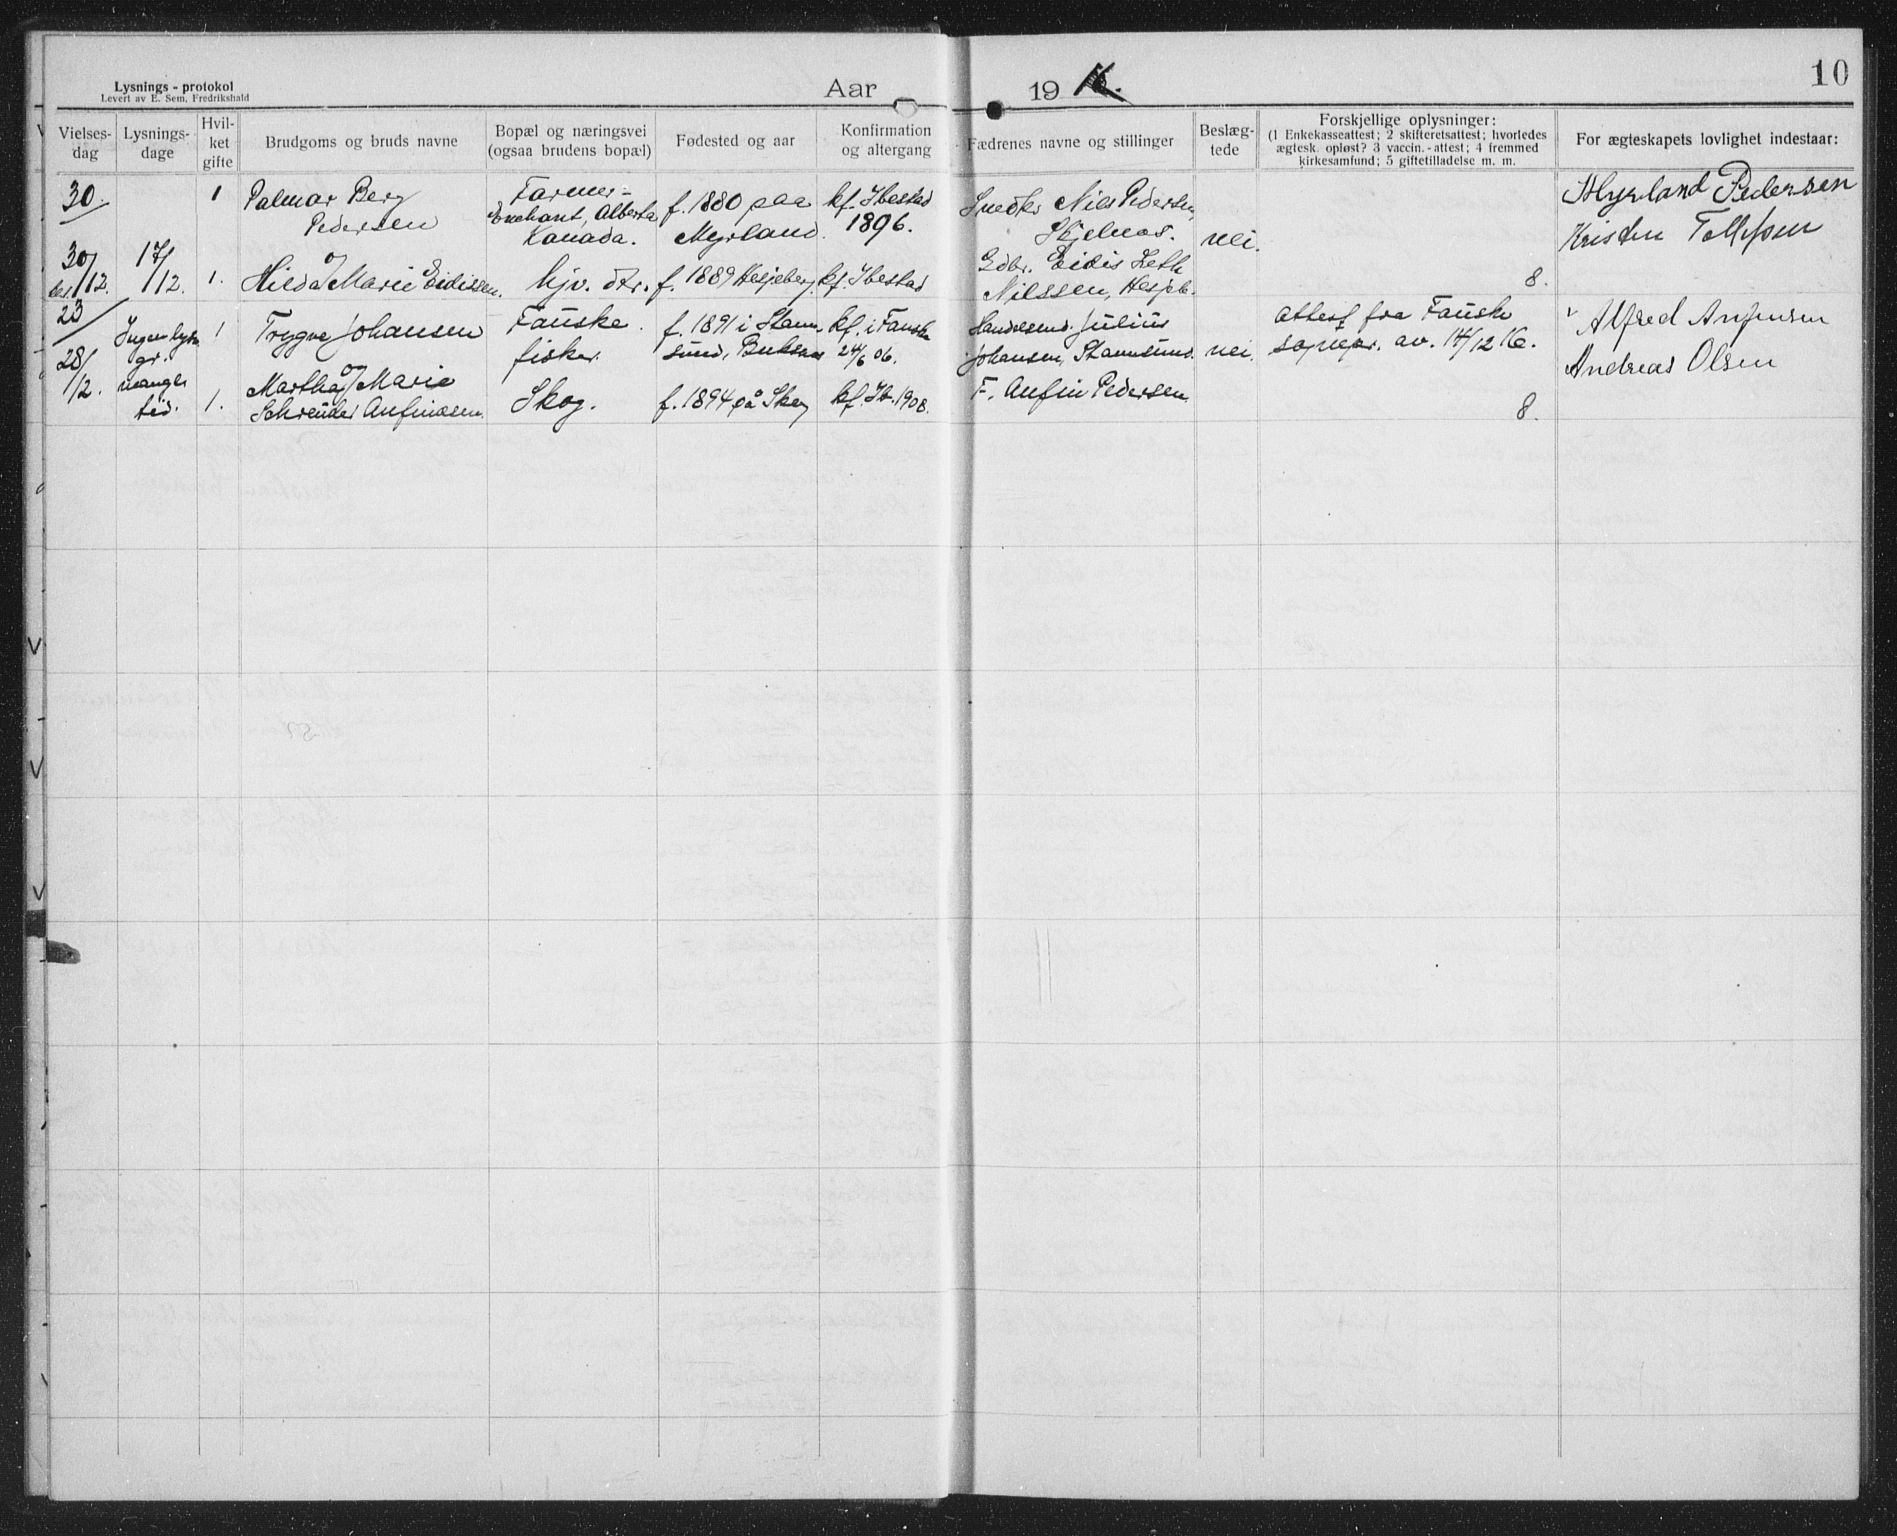 Lysnings - protokol
Levert av E. Sem, Fredrikshald
Aar
19 16.
10
Vielses-dag
Lysnings-dage
Hvil-ket gifte
Brudgoms og bruds navne
Bopæl og næringsvei (ogsaa brudens bopæl)
Fødested og aar
Konfirmation og altergang
Fædrenes navne og stillinger
Beslæg-tede
Forskjellige oplysninger:
(1 Enkekasseattest; 2 skifteretsattest; hvorledes
ægtesk. opløst? 3 vaccin.-attest; 4 fremmed
kirkesamfund; 5 giftetilladelse m. m.
For ægteskapets lovlighet indestaar:
30. 1 Palmar Berg Farmer- f. 1880 paa kf. Ibestad Snedker Nils Pedersen, Myrland Pedersen
Pedersen Enchant, Alberta Myrland. 1896. Skjelnes. nei. Kristen Tollefsen
Kanada.
30/12. 17/12. 1. og Hilda Marie Eidissen. hjv. dtr. f. 1889 Hesjeberg. kf. Ibestad Gdbr. Eidis Zeth
Nilssen, Hesjeb. 8.
23/ Ingen lysn. 1 Trygve Johansen Fauske. f. 1891 i Stam- kf. i Fauske Julius attest fra Fauske Alfred
28/12. gr. fisker. sund, Buksnes 24/6 06. Johansen, Stamsund. nei. sognepr. av. 14/12 16. Andreas Olsen
mangel og Martha Marie
tid. 1. Schrøuder Anfinnsen. Skog. f. 1894 på Skog kf. Ib. 1908. F. Anfin Pedersen 8.